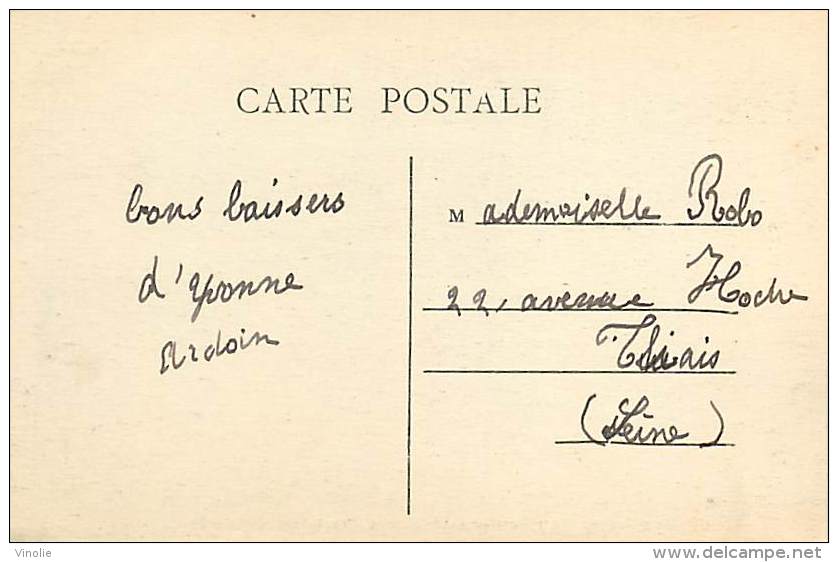 CARTE POSTALE
bons baissers
d'Yvonne
Ardoin
Mademoiselle Robo
22, avenue Hoche
Thiais
(Seine)
Vinolie
www.delcampe.net